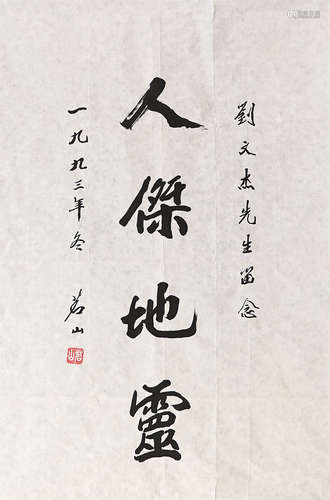 劉文杰先生留念
人傑地靈
一九九三年冬
茗山
茗山